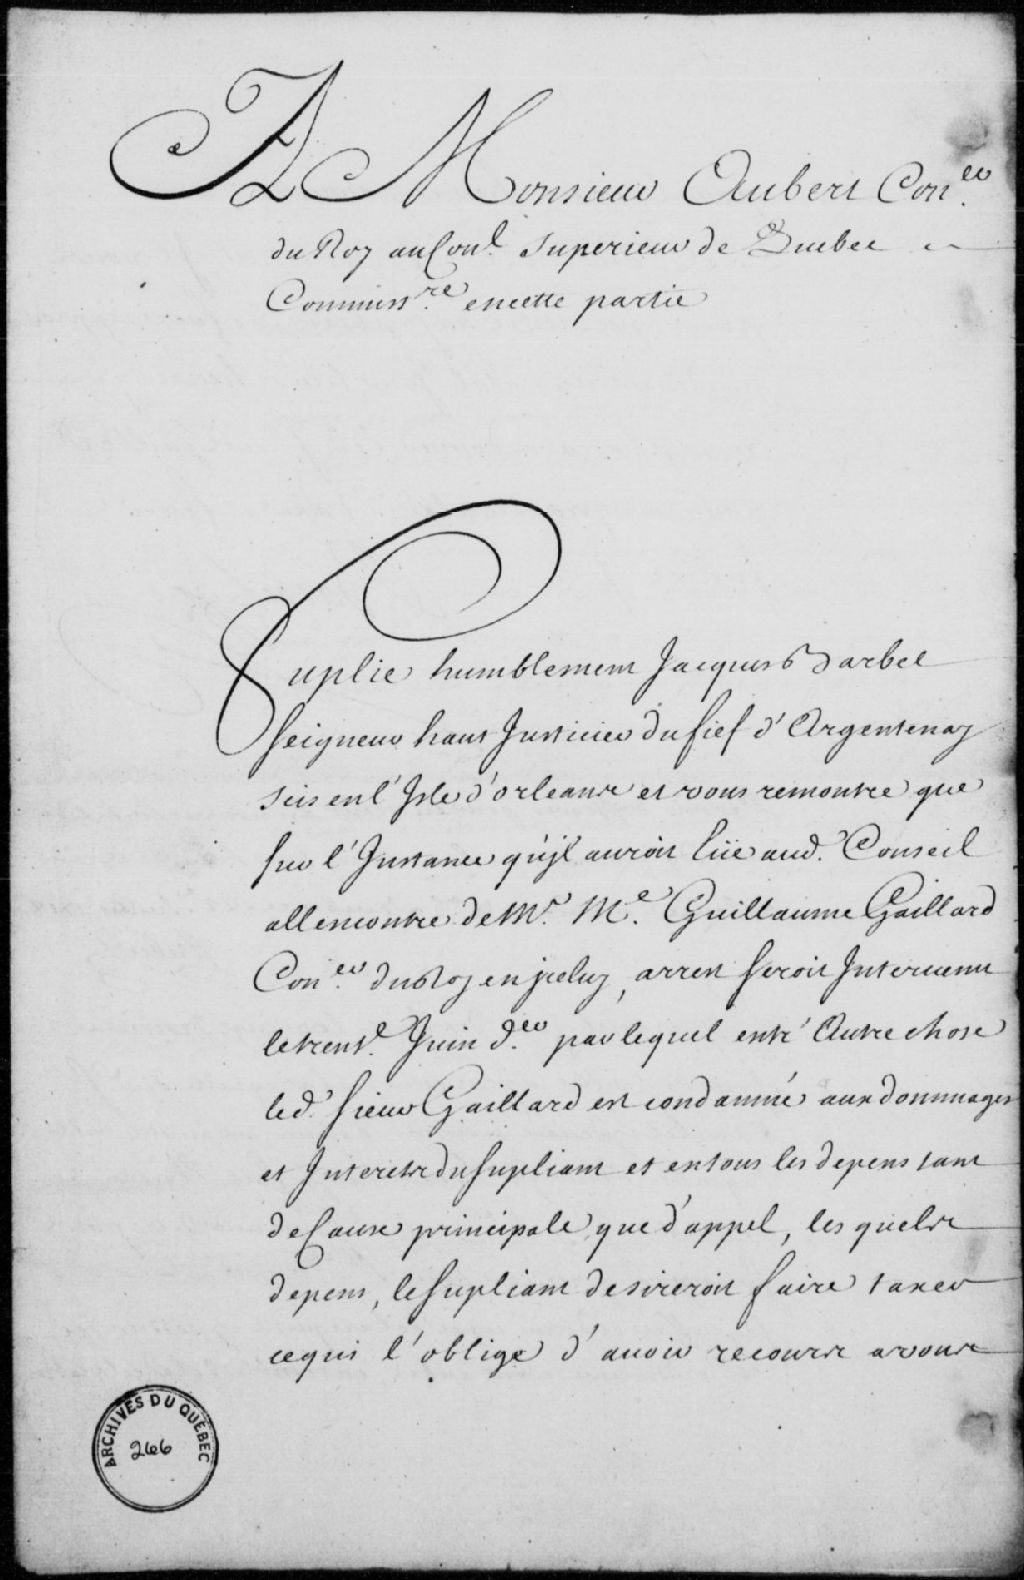 A Monsieur Aubert Con.er
du Roy au Con.l Superieur de Quebec et
Commiss.re en cette partie
Suplie humblement Jacques Barbel
Seigneur haut Justicier du fief d'Argentenay
scis en l'Isle d'orleans et vous remontre que
sur l'Instance qu'jl auroit liée aud. Conseil
allencontre de Mr. Me. Guillaume Gaillard
Con.er du Roy en jceluy, arrest seroit Intervenu
le trent.e Juin d.er par lequel entr'Autre chose
led. sieur Gaillard est condamné aux dommages
et Interests du supliant et en tous les depens tant
de Cause principale que d'appel, les quels
depens, le supliant desireroit faire taxer
ce qui l'oblige d'avoir recours a vous
ARCHIVES DU QUÉBEC
266